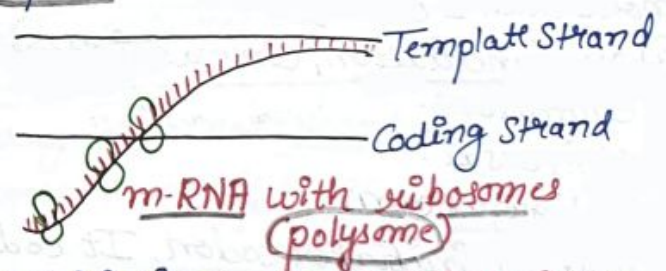 Template Strand
Coding Strand
m-RNA with ribosomes
(polysome)